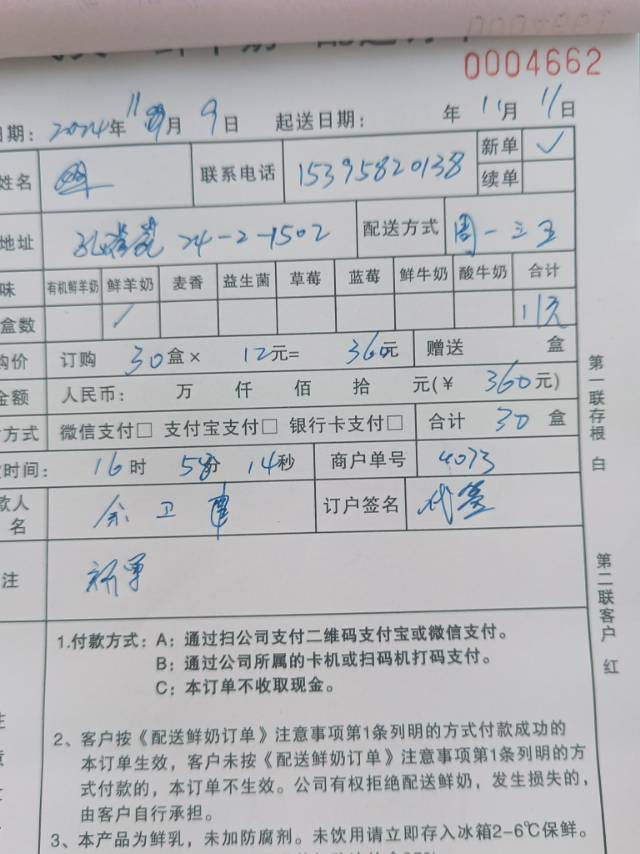 0004662
日期: 2024年 11月 9日 起送日期: 年 11月 11日
姓名 联系电话 15395820138 新单 ✓
续单
地址 24-2-1502 配送方式 周一三五
味 有机鲜羊奶 鲜羊奶 麦香 益生菌 草莓 蓝莓 鲜牛奶 酸牛奶 合计
盒数
购价 订购 30盒× 12元= 360元 赠送 盒
金额 人民币: 万 仟 佰 拾 元(¥ 360元)
方式 微信支付□ 支付宝支付□ 银行卡支付□ 合计 30盒
时间: 16时 58分 14秒 商户单号 4073
款人名 余卫 订户签名 代签
注 新单
1.付款方式: A: 通过扫公司支付二维码支付宝或微信支付。
B: 通过公司所属的卡机或扫码机打码支付。
C: 本订单不收取现金。
2、客户按《配送鲜奶订单》注意事项第1条列明的方式付款成功的
本订单生效,客户未按《配送鲜奶订单》注意事项第1条列明的方
式付款的,本订单不生效。公司有权拒绝配送鲜奶,发生损失的,
由客户自行承担。
3、本产品为鲜乳,未加防腐剂。未饮用请立即存入冰箱2-6℃保鲜。
第一联存根 白
第二联客户 红